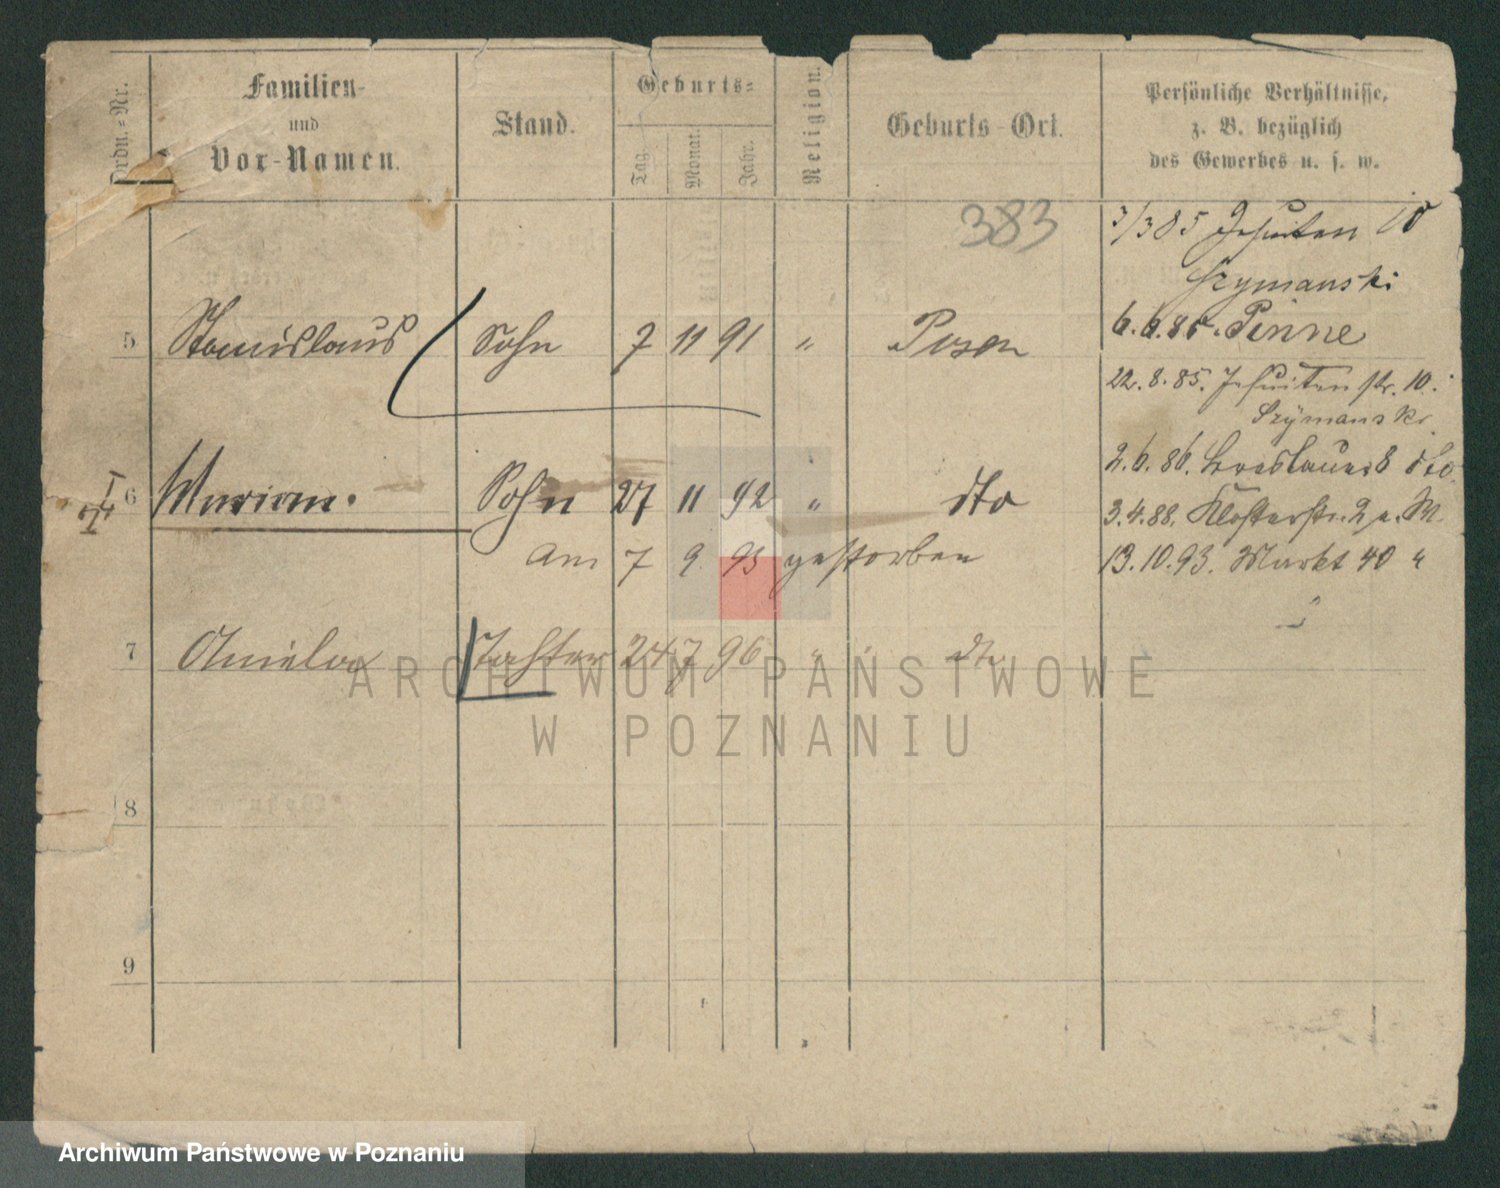 Ordn.-Nr.
Familien-
und
Vor-Namen.
Stand.
Geburts-
Tag.
Monat.
Jahr.
Religion.
Geburts-Ort.
Persönliche Verhältnisse,
z. B. bezüglich
des Gewerbes u. s. w.
383
3/3 85 Jesuiten 10
Szymanski
5 Stanislaus Sohn 7 11 91 " Posen
6.6.85. Pinne
22.8.85. Jesuitenstr. 10.
Szymanski
2.6.86. Breslauer 8 dto.
6 Marian. Sohn 27 11 92 " dto
3.4.88. Klosterstr. 2 a. M
am 7 9 93 gestorben
13.10.93. Markt 40 "
7 Aniela Tochter 24 7 96 " dto
ARCHIWUM PAŃSTWOWE
W POZNANIU
8
9
Archiwum Państwowe w Poznaniu